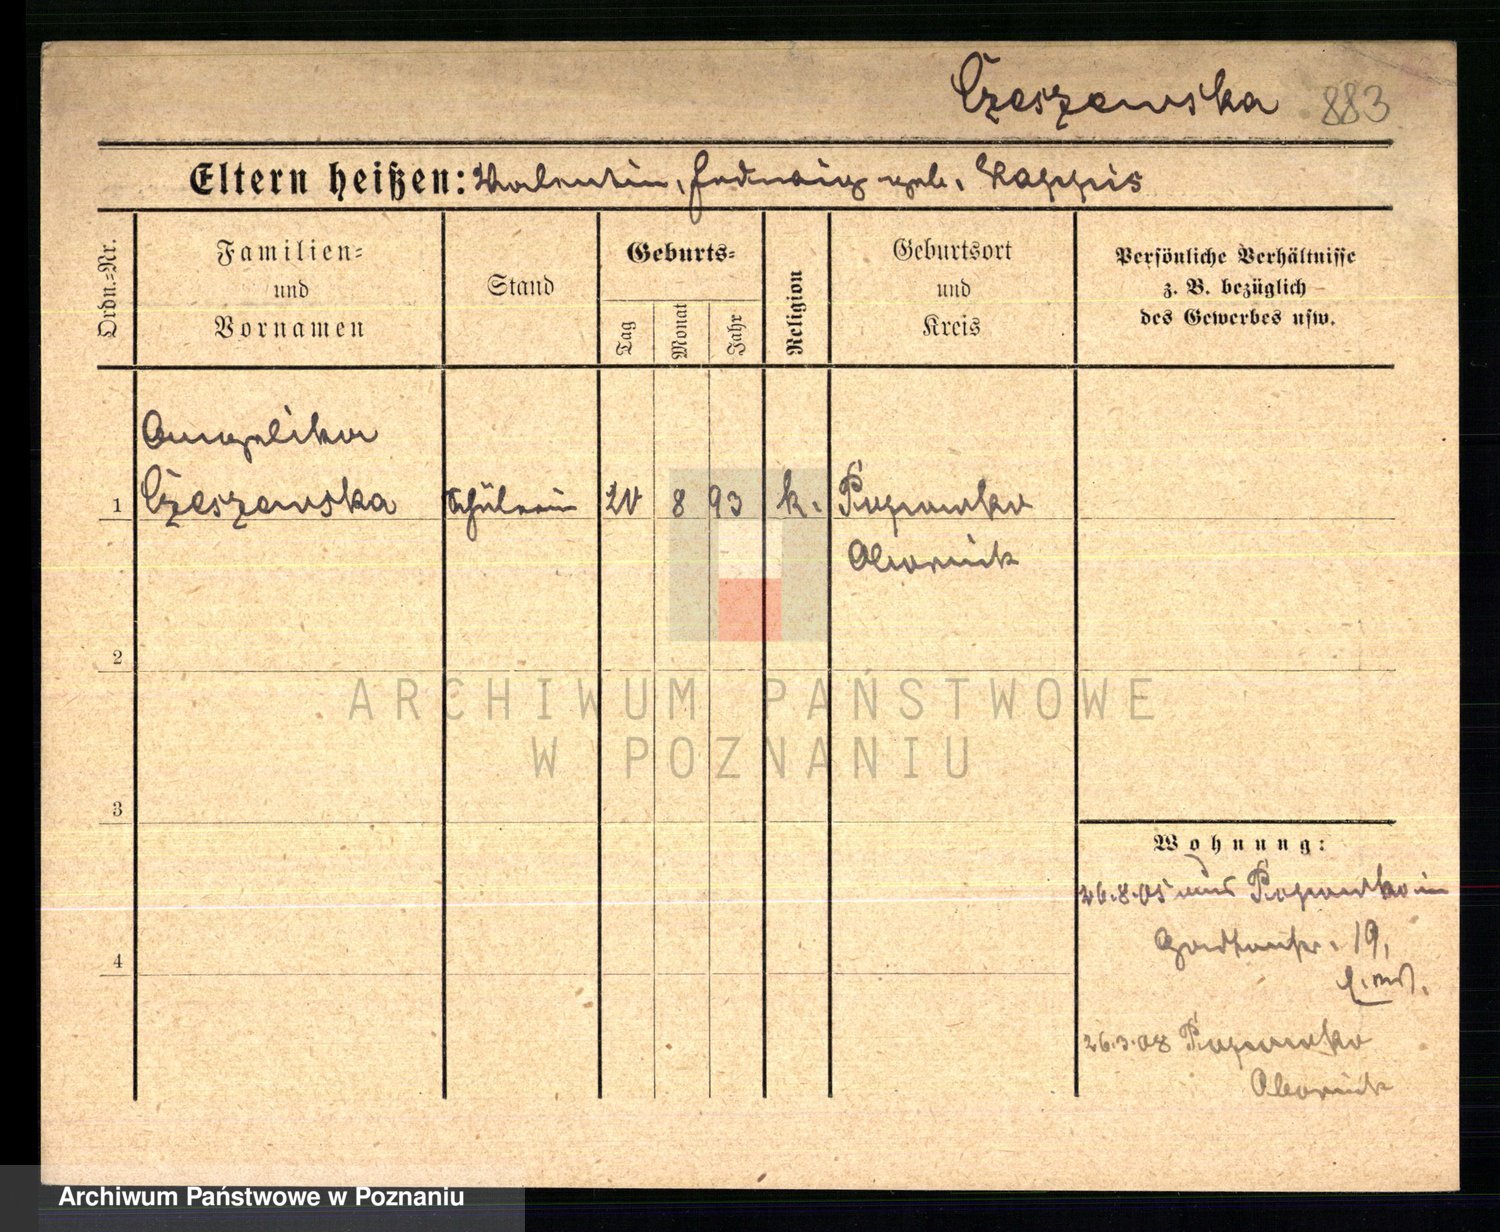 Czeszewska 883
Eltern heißen: Valentin, Hedwig geb. Kappis
Ordn.=Nr.
Familien=
und
Vornamen
Stand
Geburts=
Tag
Monat
Jahr
Religion
Geburtsort
und
Kreis
Persönliche Verhältnisse
z. B. bezüglich
des Gewerbes usw.
Angelika
1 Czeszewska Schülerin 20 8 93 k. Popowko
Obornik
2
ARCHIWUM PAŃSTWOWE
W POZNANIU
3
4
Wohnung:
26.8.05 aus Popowko in
19,
26.3.08 Popowko
Obornik
Archiwum Państwowe w Poznaniu